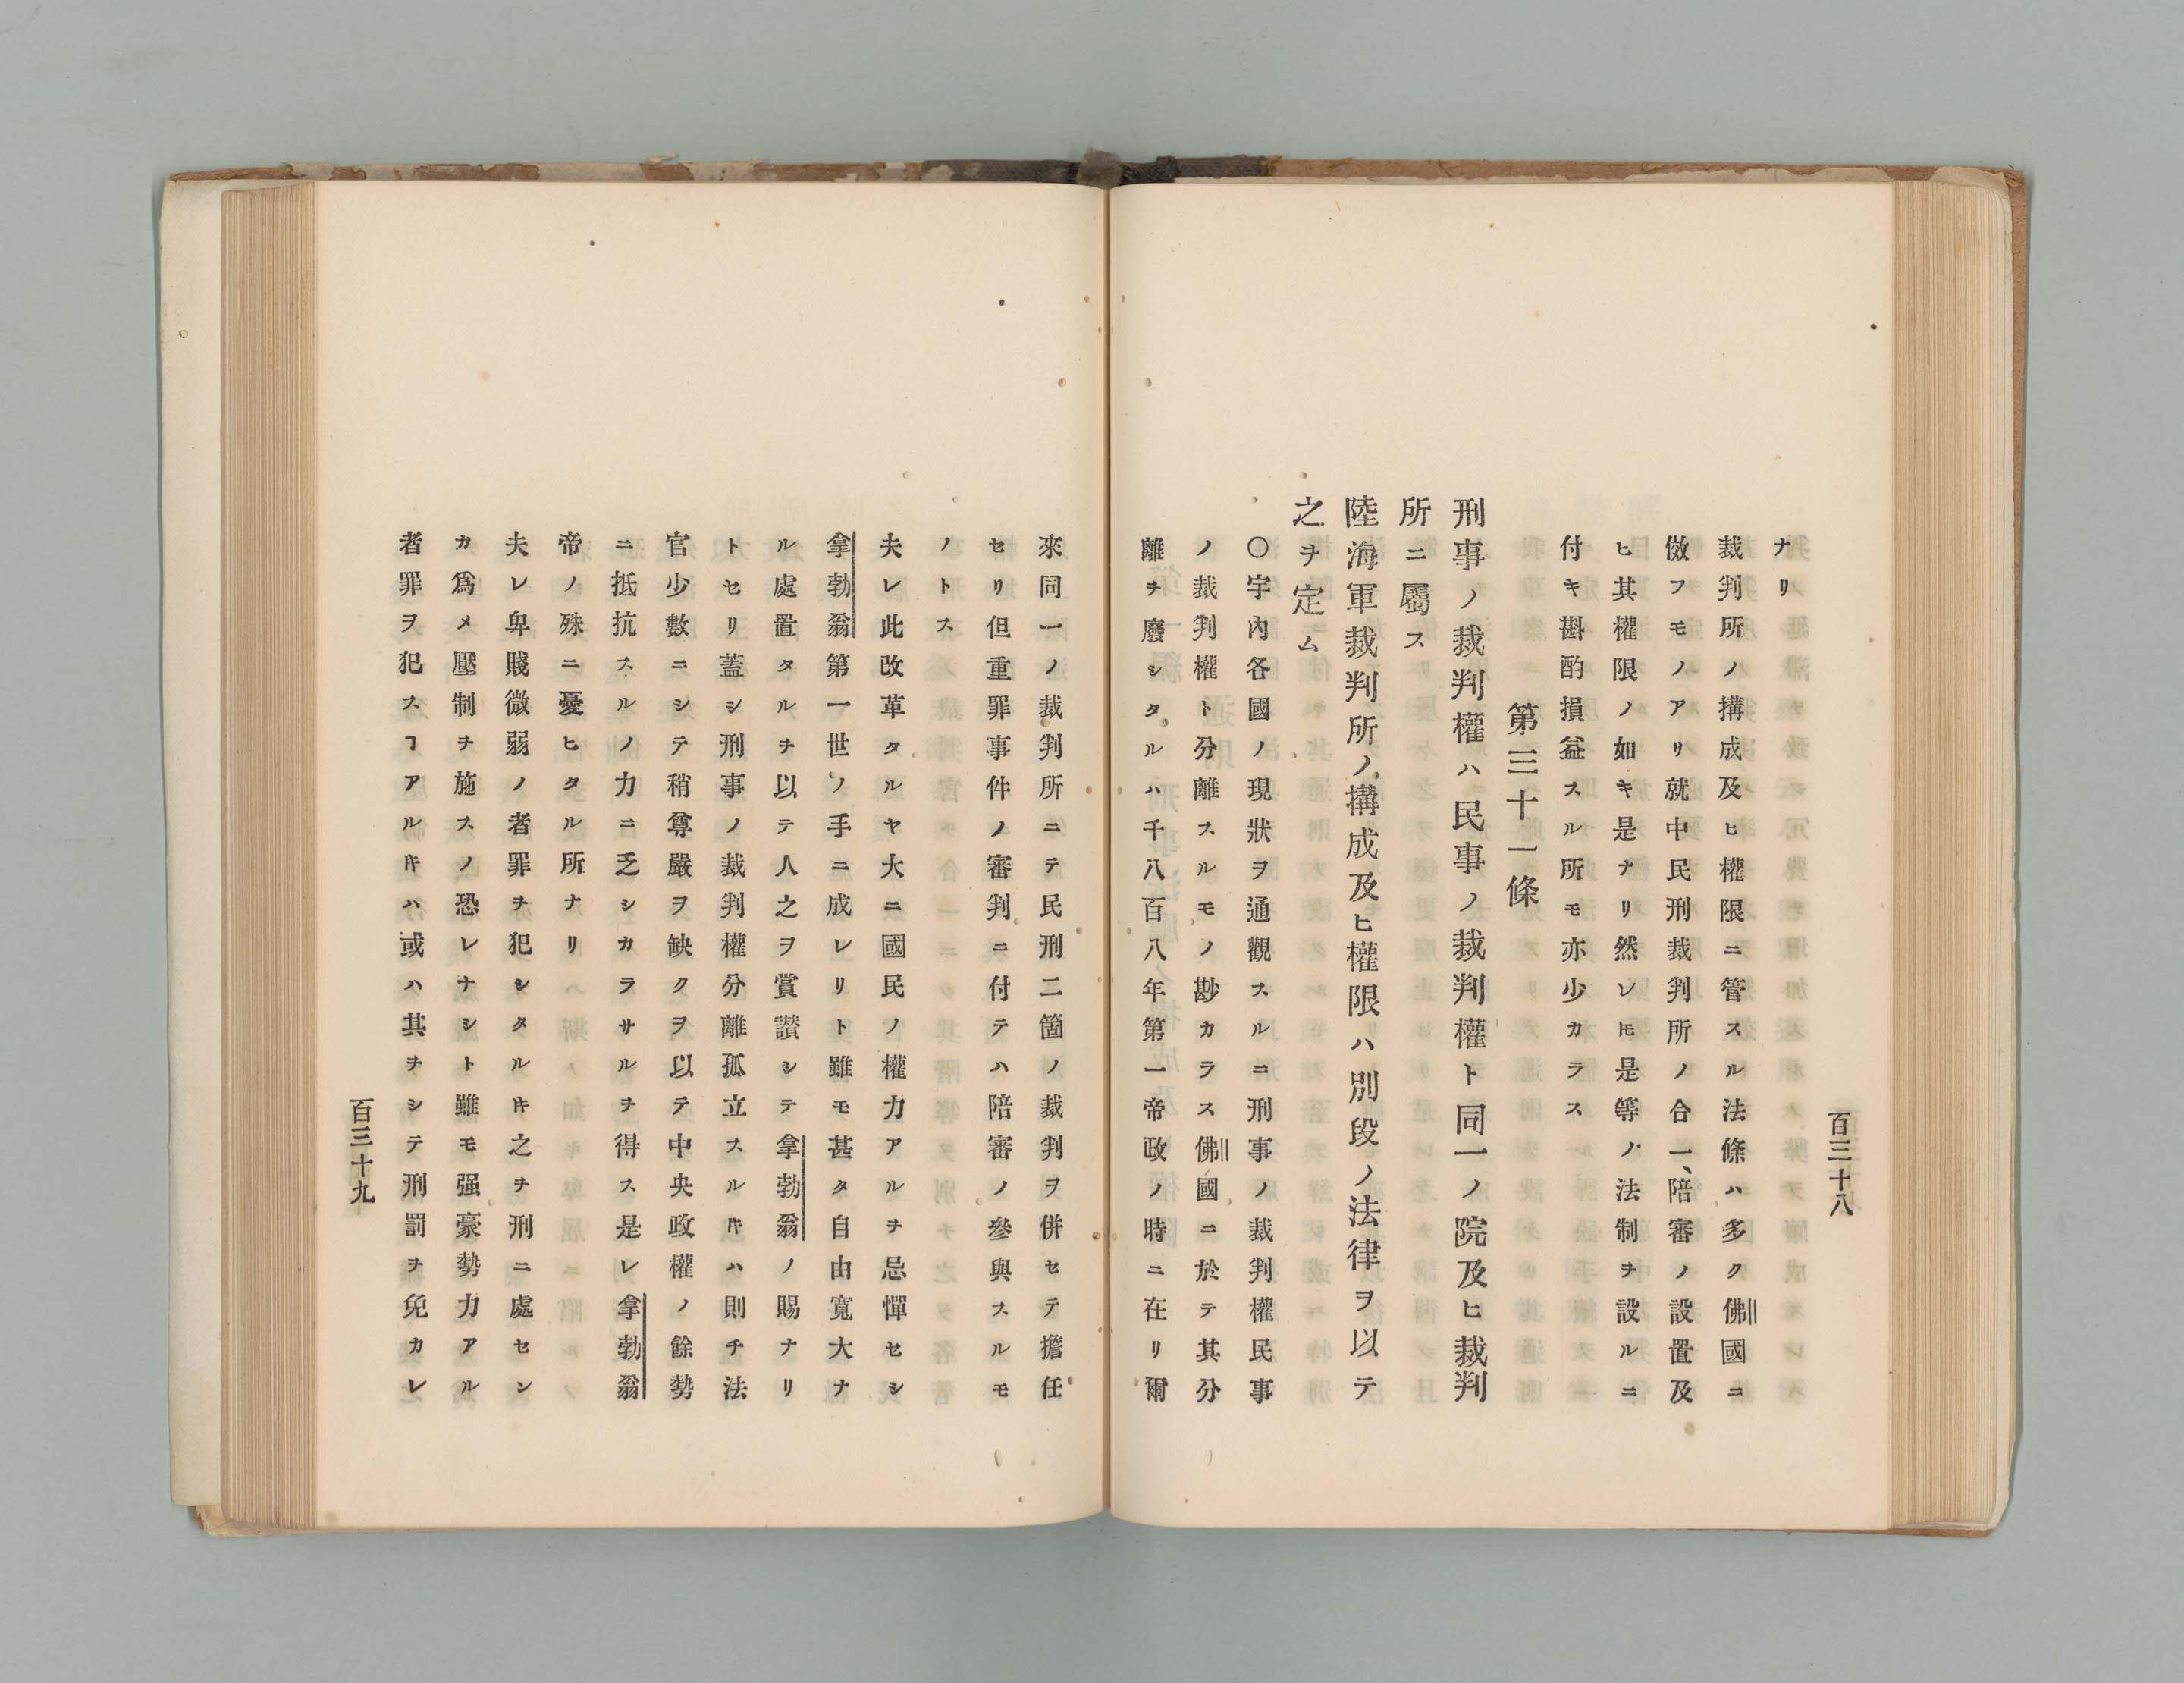 百三十八
ナリ
裁判所ノ搆成及ヒ權限ニ管スル法條ハ多ク佛國ニ
倣フモノアリ就中民刑裁判所ノ合一、陪審ノ設置及
ヒ其權限ノ如キ是ナリ然レ𪜈是等ノ法制ヲ設ルニ
付キ斟酌損益スル所モ亦少カラス
第三十一條
刑事ノ裁判權ハ民事ノ裁判權ト同一ノ院及ヒ裁判
所ニ屬ス
陸海軍裁判所ノ搆成及ヒ權限ハ別段ノ法律ヲ以テ
之ヲ定ム
〇宇內各國ノ現狀ヲ通觀スルニ刑事ノ裁判權民事
ノ裁判權ト分離スルモノ尠カラス佛國ニ於テ其分
離ヲ廢シタルハ千八百八年第一帝政ノ時ニ在リ爾
來同一ノ裁判所ニテ民刑二箇ノ裁判ヲ併セテ擔任
セリ但重罪事件ノ審判ニ付テハ陪審ノ參與スルモ
ノトス
夫レ此改革タルヤ大ニ國民ノ權力アルヲ忌憚セシ
拿勃翁第一世ノ手ニ成レリト雖モ甚タ自由寬大ナ
ル處置タルヲ以テ人之ヲ賞讃シテ拿勃翁ノ賜ナリ
トセリ蓋シ刑事ノ裁判權分離孤立スルキハ則チ法
官少數ニシテ稍尊嚴ヲ缺クヲ以テ中央政權ノ餘勢
ニ抵抗スルノ力ニ乏シカラサルヲ得ス是レ拿勃翁
帝ノ殊ニ憂ヒタル所ナリ
夫レ卑賤微弱ノ者罪ヲ犯シタルキ之ヲ刑ニ處セン
カ爲メ壓制ヲ施スノ恐レナシト雖モ强豪勢力アル
者罪ヲ犯スヿアルキハ或ハ其ヲシテ刑罰ヲ免カレ
百三十九